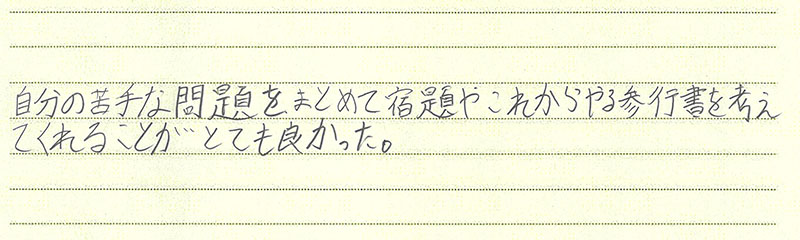 自分の苦手な問題をまとめて宿題やこれからやる参行書を考え
てくれることがとても良かった。